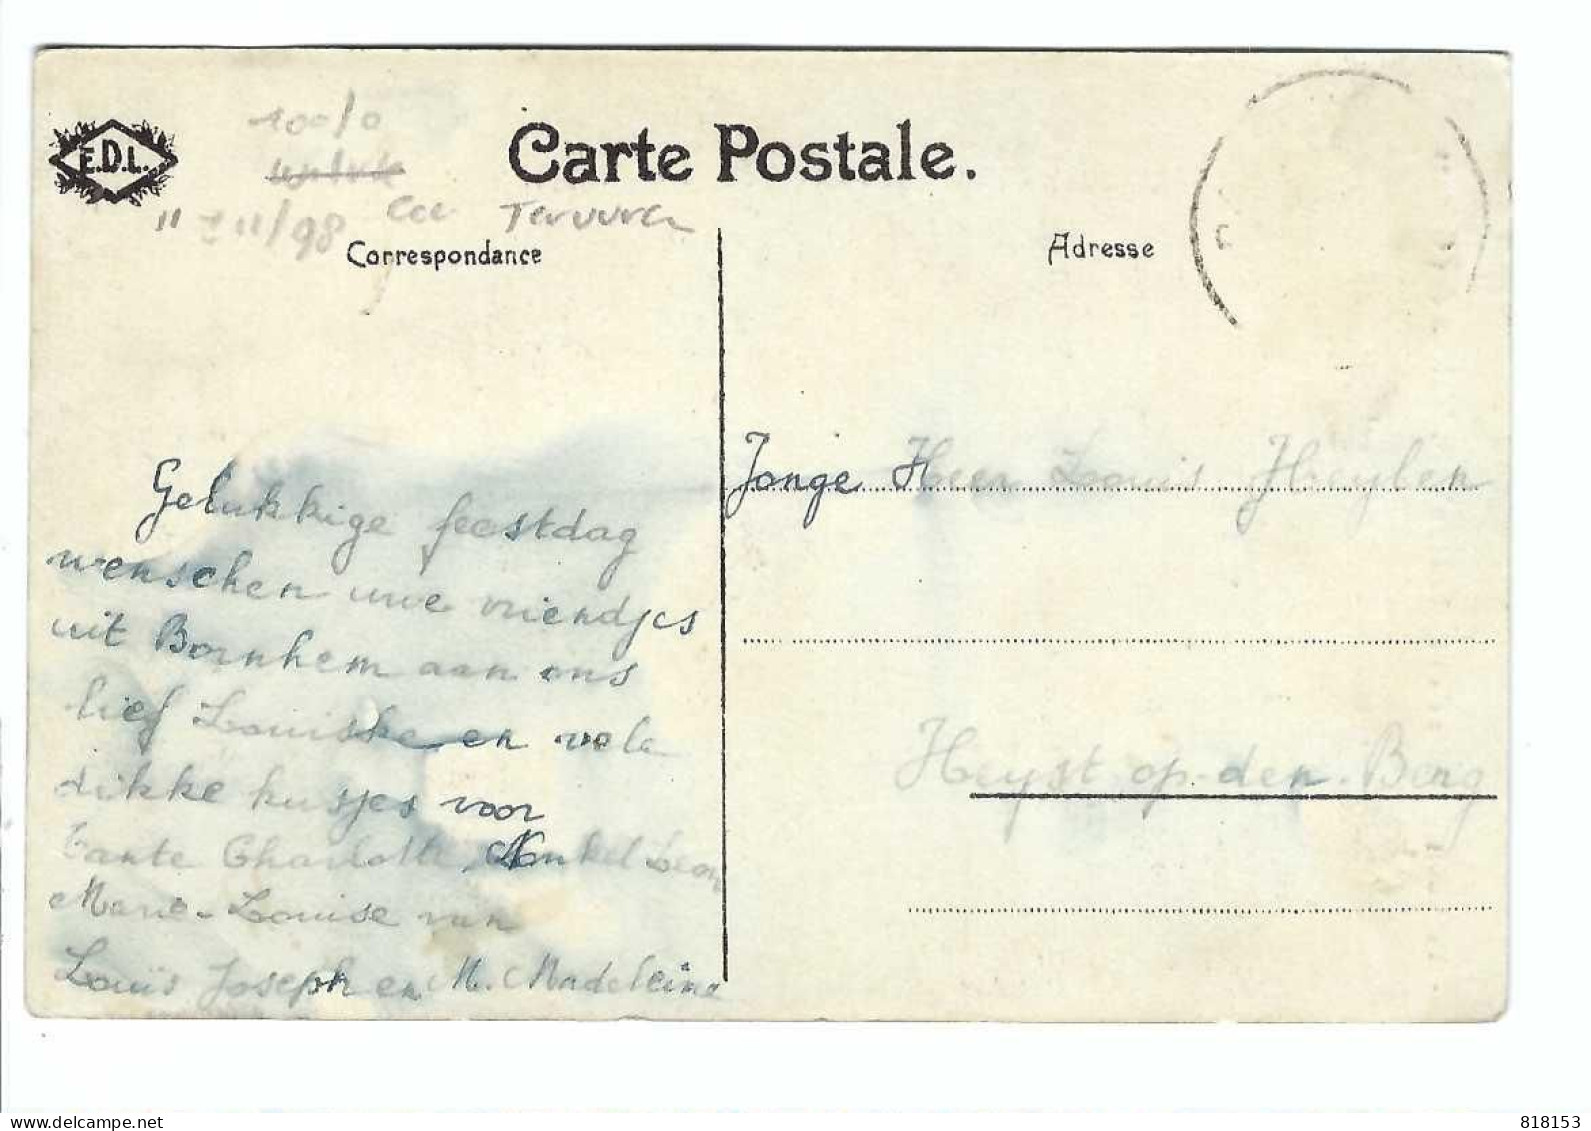 E.D.L.
100/0
Carte Postale.
" 7 11/98 Tervuren
Correspondance
Adresse
Gelukkige feestdag
wenschen uwe vriendjes
uit Bornhem aan ons
lief Louiske en vele
dikke kusjes voor
tante Charlotte, Nonkel Leon
Marie-Louise van
Louis Joseph en M. Madeleine
Jonge Heer Louis Heylen
Heyst op-den-Berg
818153